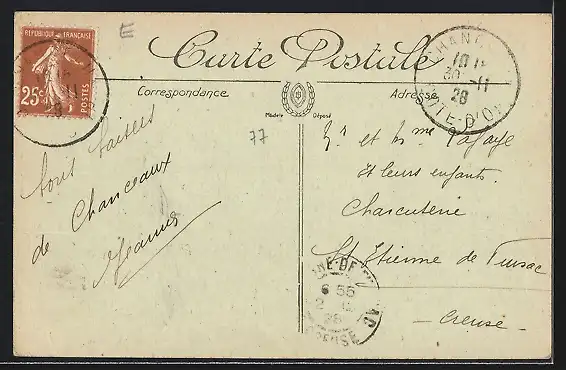 RÉPUBLIQUE FRANÇAISE
25c
POSTES
E
Carte Postale
CHANC
30 -11
28
CÔTE-D'OR
Correspondance
Adresse
Modèle Déposé
77
bons baisers
de Chanceaux
Jeanne
Mr et Mme
et leurs enfants.
Charcuterie
St Etienne de Fursac
- Creuse -
NE-DE-FU
6 55
CREUSE